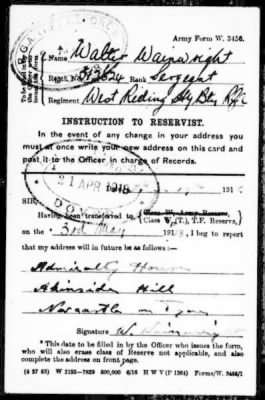 Army Form W. 3456.
Name Walter Wainwright
Regtl. No. Rank Sergeant
Regiment West Riding Hy Bty R.G.A
INSTRUCTION TO RESERVIST.
In the event of any change in your address you
must at once write your new address on this card and
post it to the Officer in charge of Records.
21 APR 1918
DOVER
191
SIR,
Having been transferred to Class W. Army Reserve,
(Class W.(T.), T.F. Reserve,)
on the 3rd May 191 , I beg to report
that my address will in future be as follows :—
Admiralty House
Akenside Hill
Newcastle on Tyne
Signature W. Wainwright
* This date to be filled in by the Officer who issues the form,
who will also erase class of Reserve not applicable, and also
complete the address on front page.
(4 37 63) W 2195—7829 500,000 6/16 H W V (P 1264) Forms/W. 3456/1